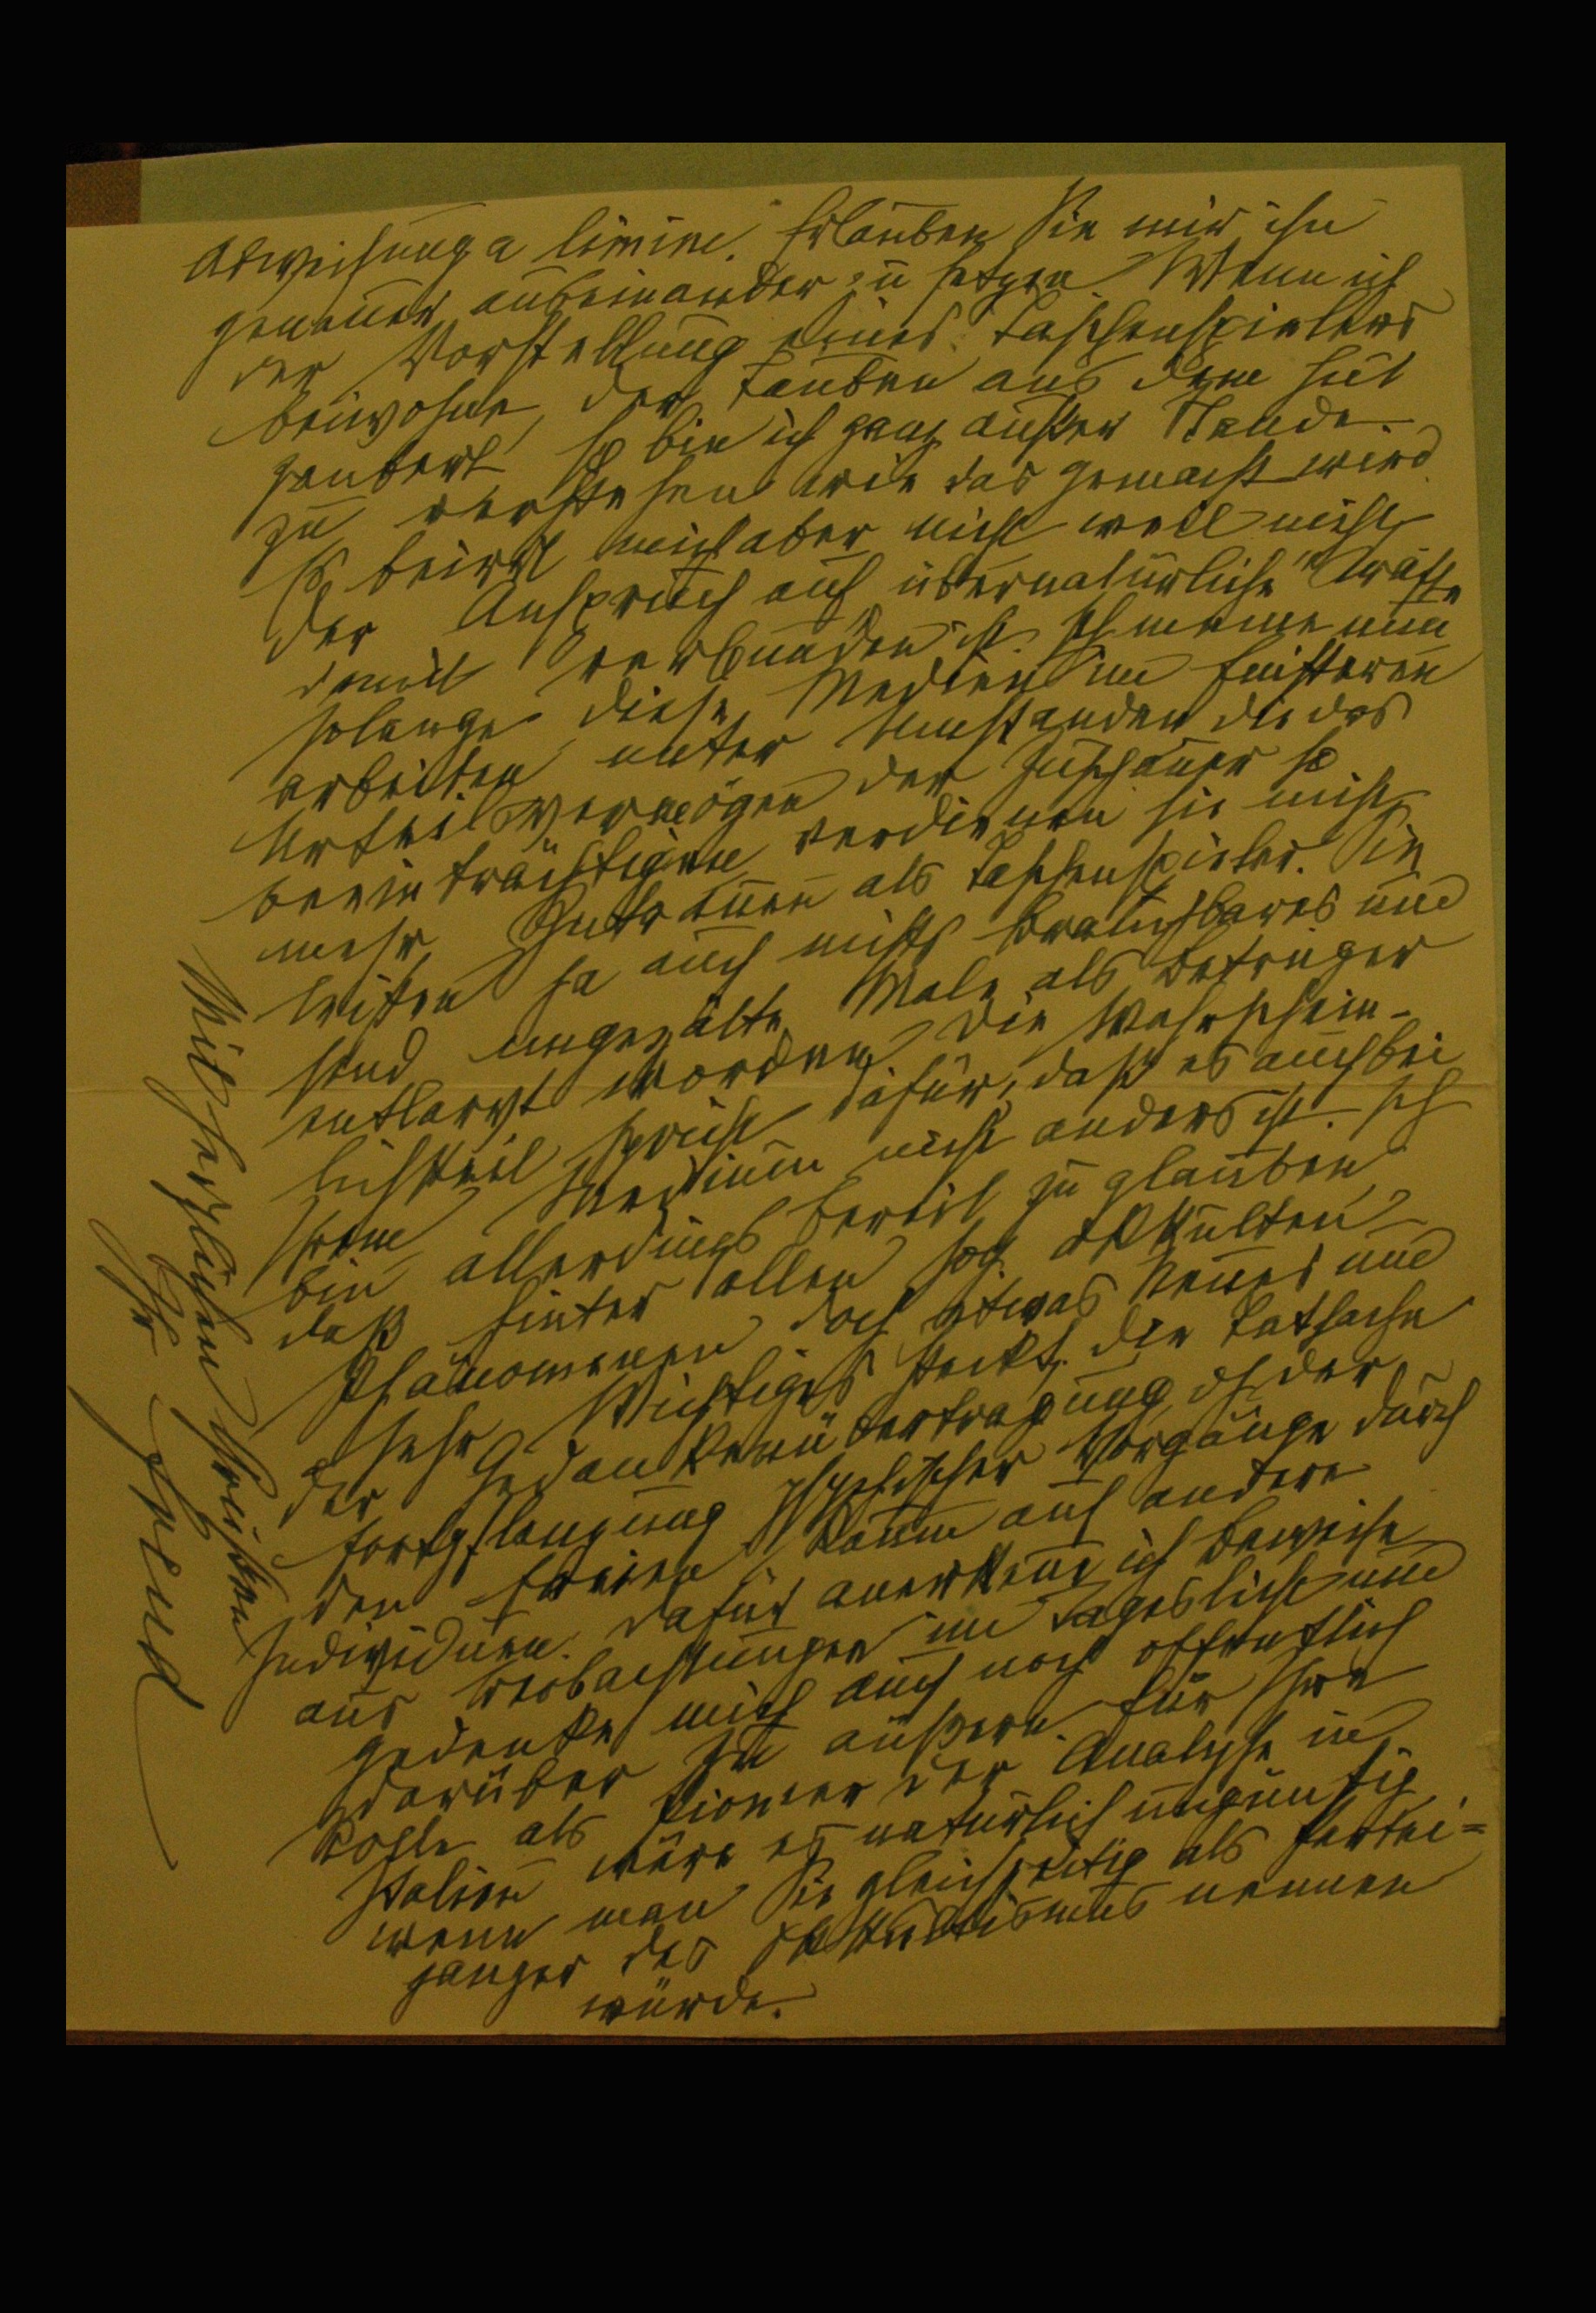 Abweisung a limine. Erlauben Sie mir ihn
genauer auseinander zu setzen. Wenn ich
der Vorstellung eines Taschenspielers
beiwohne, der Tauben aus dem Hut
zaubert, so bin ich ganz außer Stande
zu verstehen wie das gemacht wird
es beirrt mich aber nicht weil nicht
der Anspruch auf „übernatürliche“ Kräfte
damit verbunden ist. Ich meine nun
solange diese Medien im Finsteren
arbeiten unter Umständen die das
Urteilsvermögen der Zuschauer so
beeinträchtigen verdienen sie nicht
mehr Zutrauen als Taschenspieler. Sie
leisten ja auch nichts Brauchbares und
sind ungezälte Male als Betrüger
entlarvt worden. Die Wahrschein-
lichkeit spricht dafür, daß es auch bei
Ihrem Medium nicht anders ist. Ich
bin allerdings bereit zu glauben
daß hinter allen sog. okkulten
Phänomenen doch etwas Neues und
sehr Wichtiges steckt: die Tatsache
der Gedankenübertragung, dh der
Fortpflanzung psychischer Vorgänge durch
den freien Raum auf andere
Individuen. Dafür anerkenne ich Beweise
aus Beobachtungen im Tageslicht und
gedenke mich auch noch öffentlich
darüber zu äußern. Für Ihre
Rolle als Pionier der Analyse in
Italien wäre es natürlich ungünstig
wenn man Sie gleichzeitig als Partei=
gänger des Okkultismus nennen
würde.
Mit herzlichen Grüßen
Ihr Freud